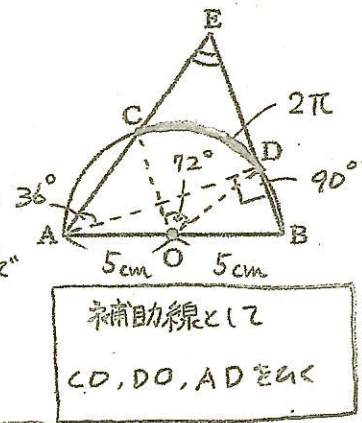 E
C
2π
72°
D
36°
90°
A
O
B
5cm
5cm
補助線として
CO, DO, ADをひく